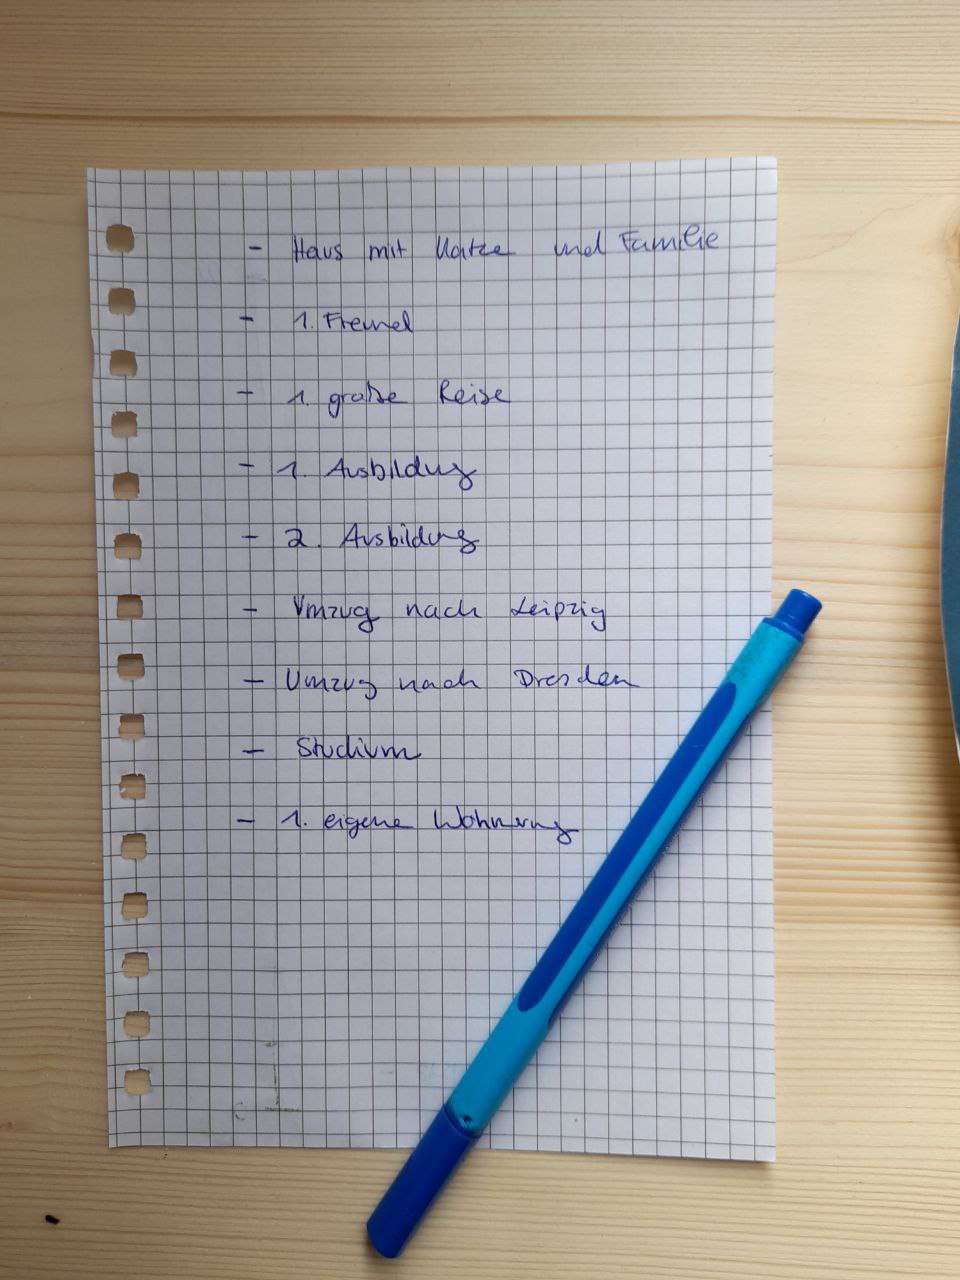 - Haus mit Katze und Familie
- 1. Freund
- 1. große Reise
- 1. Ausbildung
- 2. Ausbildung
- Umzug nach Leipzig
- Umzug nach Dresden
- Studium
- 1. eigene Wohnung